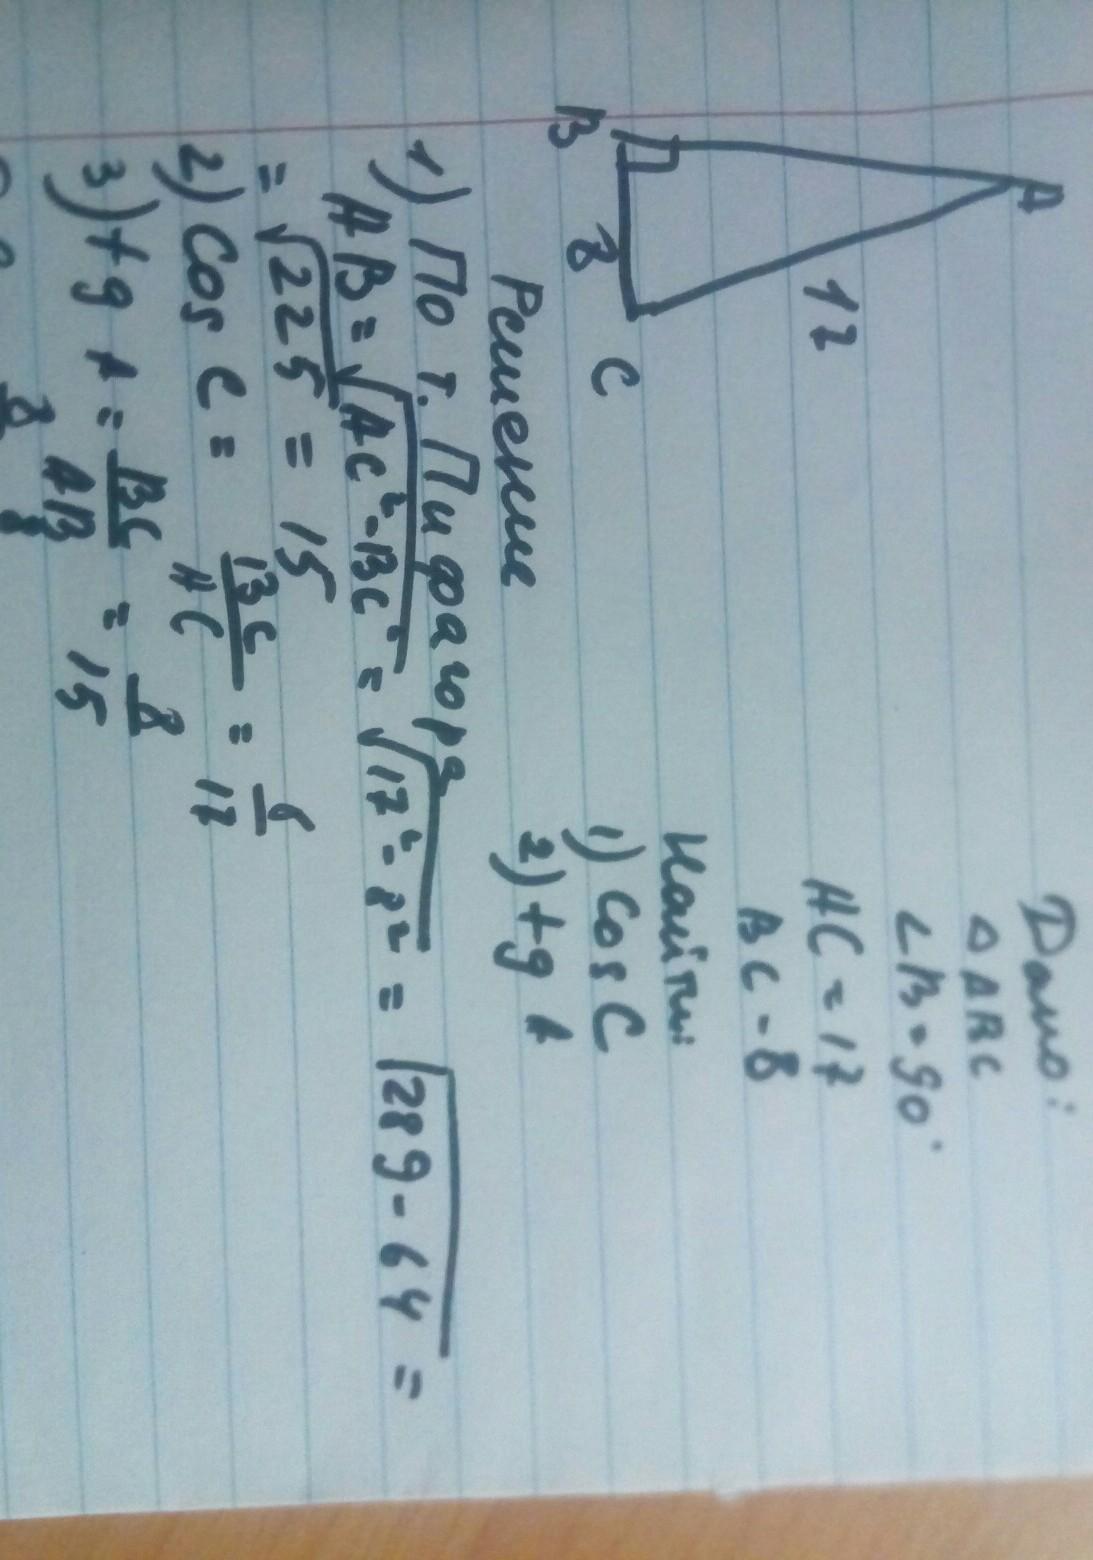 A
17
B
8
C
Дано:
△ ABC
∠B = 90°
AC = 17
BC - 8
Найти:
1) Cos C
2) tg A
Решение
1) По т. Пифагора
AB = √AC² - BC² = √17² - 8² = √289 - 64 =
= √225 = 15
2) Cos C = BC/AC = 8/17
3) tg A = BC/AB = 8/15